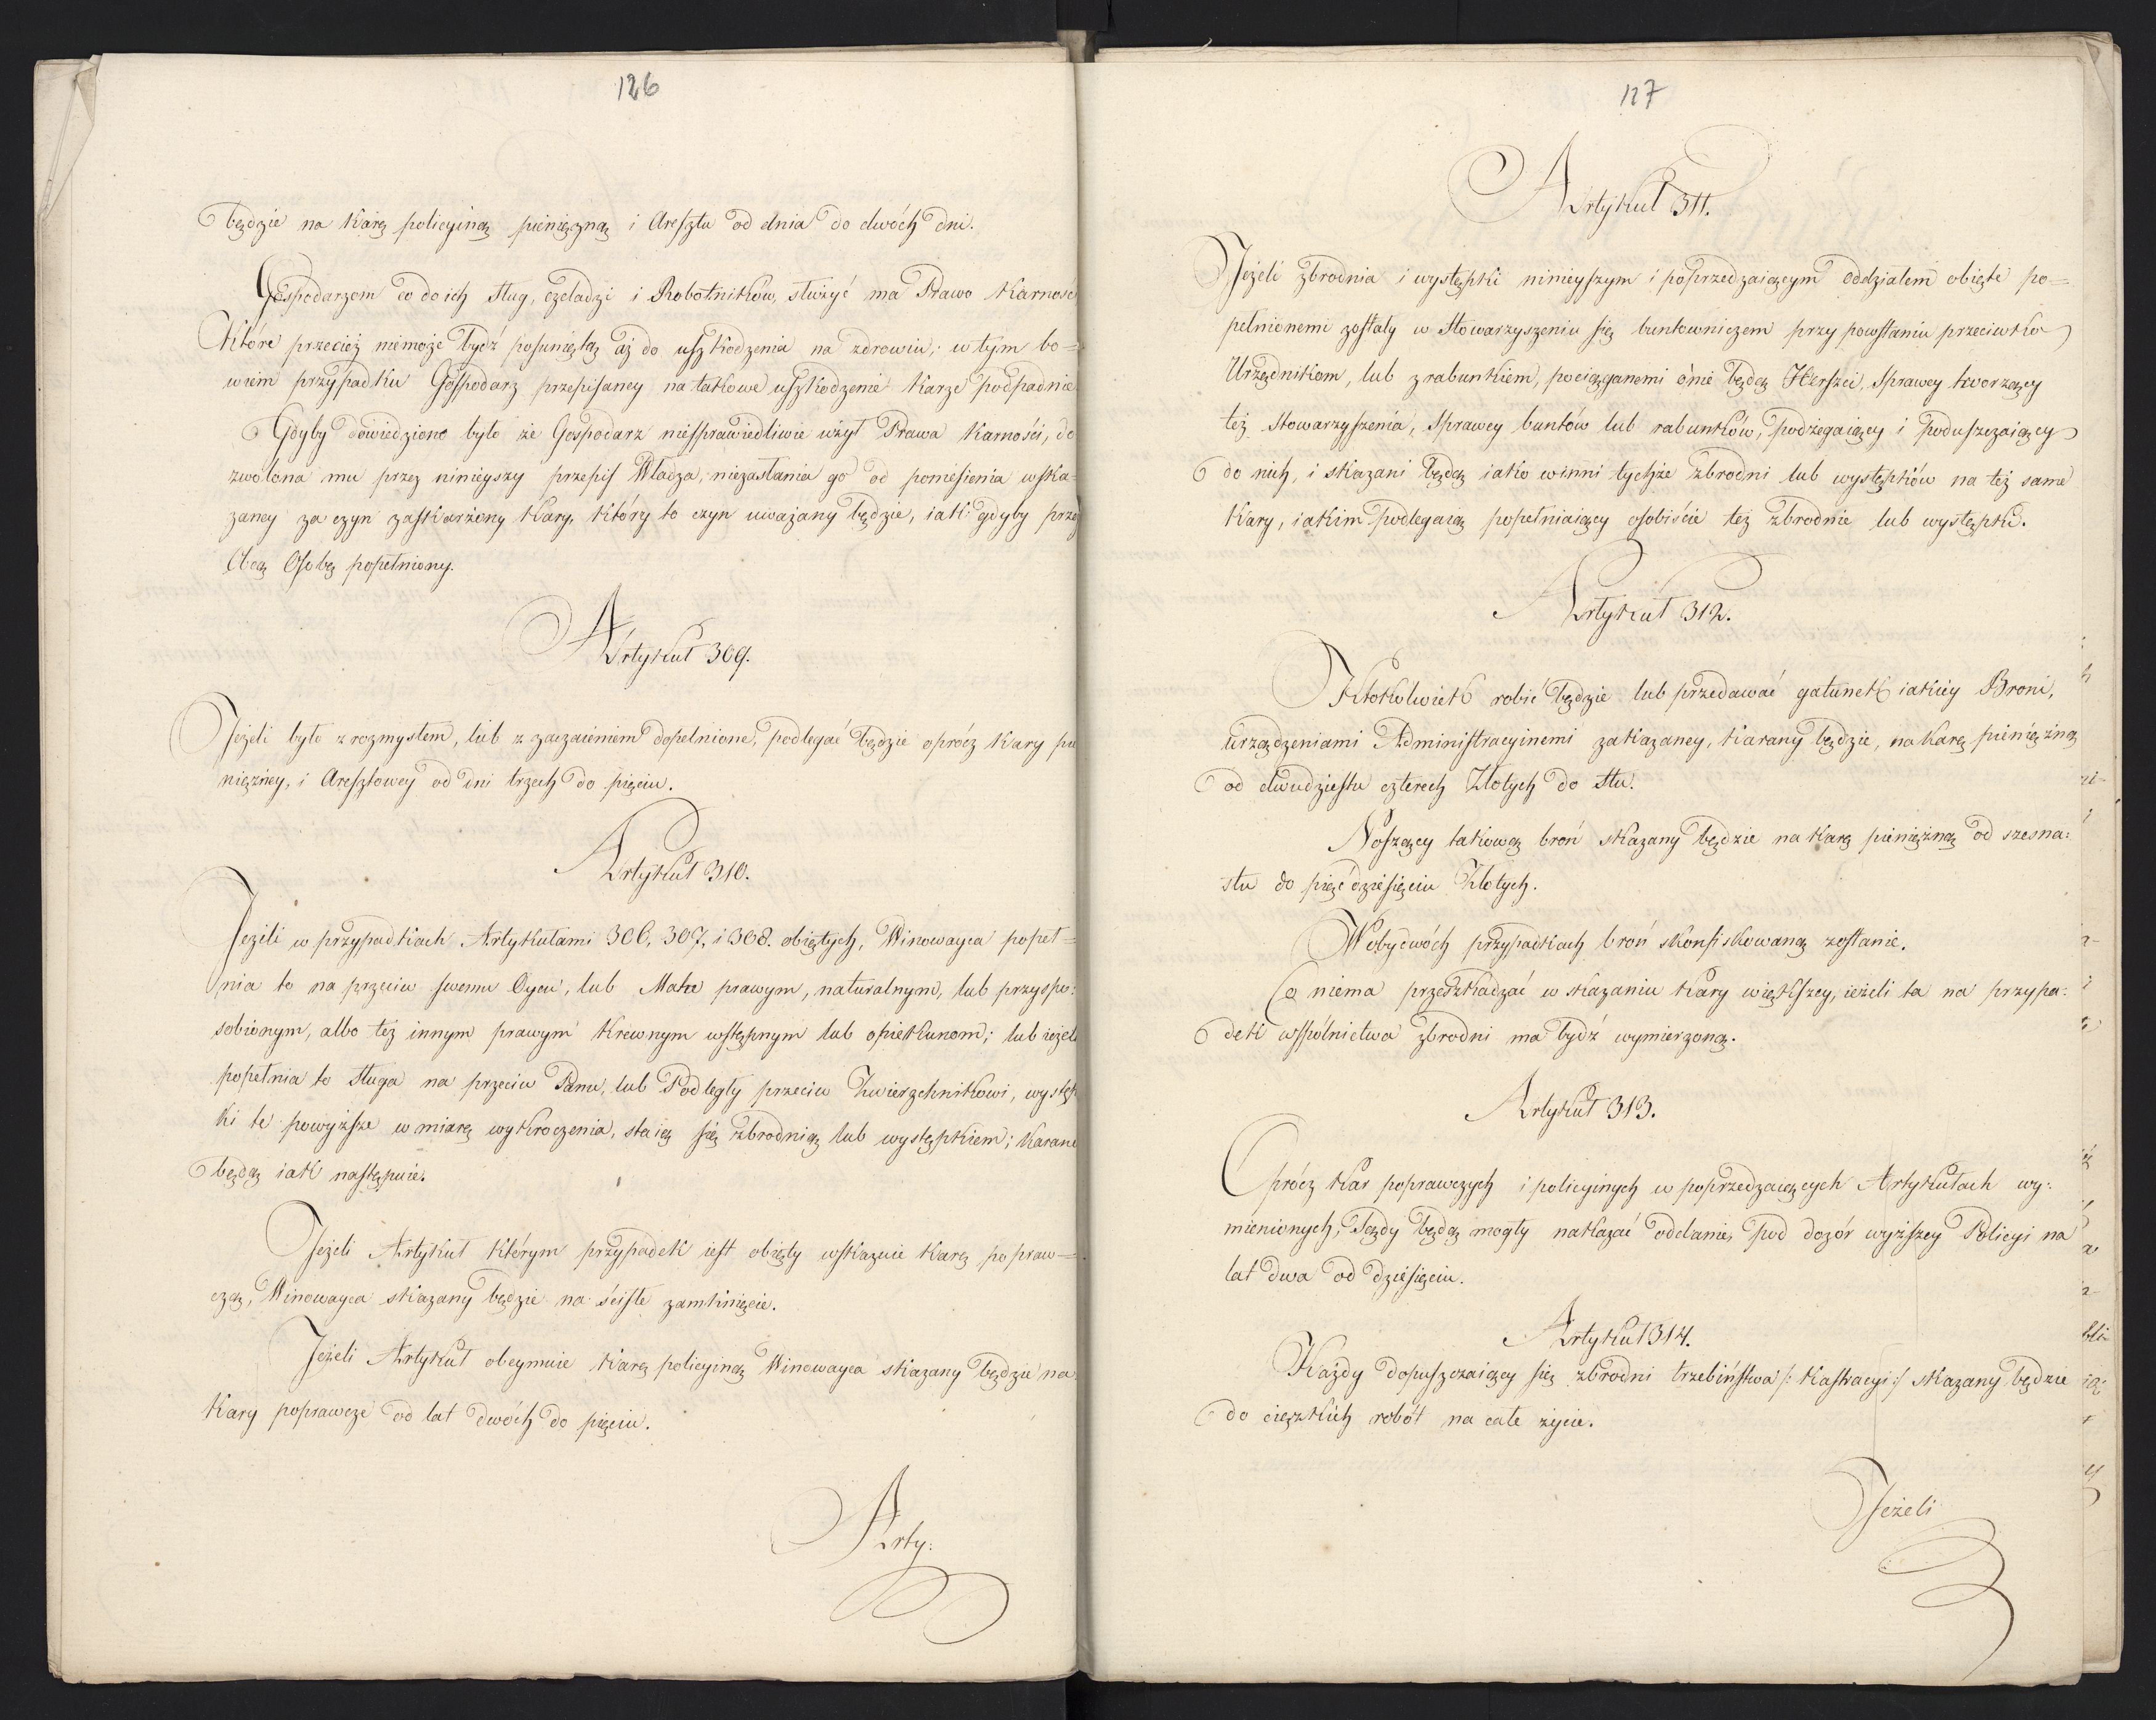 126
będzie na Karę policyiną pieniężną i Aresztu od dnia do dwóch dni.
Gospodarzom co do ich sług, czeladzi i Robotników, służyć ma Prawo Karnośc
Które przecież niemoże bydź posunięta aż do uszkodzenia na zdrowiu; w tym bo=
wiem przypadku Gospodarz przepisaney na takowe uszkodzenie Karze podpadnie
Gdyby dowiedzione było że Gospodarz niesprawiedliwie użył Prawa Karności, do
zwolona mu przez ninieyszy przepis Władza, niezasłania go od poniesienia wska=
zaney za czyn zaskarżony Kary, który to czyn uważany będzie, iak gdyby przez
Obcą Osobę popełniony.
Artykuł 309.
Jeżeli było z rozmysłem, lub z zaczaieniem dopełnione, podlegać będzie oprócz Kary pie
niężney, i Aresztowey od dni trzech do pięciu.
Artykuł 310.
Jeżeli w przypadkach Artykułami 306, 307, i 308. obiętych, Winowayca popeł=
nia to na przeciw swemu Oycu, lub Matce prawym, naturalnym, lub przyspo=
sobionym, albo też innym prawym Krewnym wstępnym lub opiekunom; lub ieżeli
popełnia to sługa na przeciw Panu, lub Podległy przeciw Zwierzchnikowi, występ
ki te powyższe w miarę wykroczenia, staią się zbrodnią lub występkiem; Karane
będą iak następuie.
Jeżeli Artykuł którym przypadek iest obięty wskazuie Karę popraw=
czą, Winowayca skazany będzie na ścisłe zamknięcie.
Jeżeli Artykuł obeymuie Karę policyiną Winowayca skazany będzie na
Kary poprawcze od lat dwóch do pięciu.
Arty:
127
Artykuł 311.
Jeżeli zbrodnia i występki ninieyszym i poprzedzaiącym oddziałem obięte po=
pełnionemi zostały w Stowarzyszeniu się buntowniczem przy powstaniu przeciwko
Urzędnikom, lub z rabunkiem, pociąganemi o nie będą Herszci, Sprawcy tworzący
też stowarzyszenia, Sprawcy buntów lub rabunków, podżegaiący i poduszczaiący
do nich, i skazani będą iako winni tychże zbrodni lub występków na też same
Kary, iakim podlegaią popełniaiący osobiście też zbrodnie lub występki.
Artykuł 312.
Ktokolwiek robić będzie lub przedawać gatunek iakiey Broni,
urządzeniami Administracyinemi zakazaney, Karany będzie, na Karę pieniężną
od dwudziestu czterech Złotych do Stu.
Noszący takową broń skazany będzie na Karę pieniężną od szesna=
stu do pięćdziesięciu Złotych.
W obydwóch przypadkach broń skonfiskowaną zostanie.
Co niema przeszkadzać w skazaniu Kary większey, ieżeli ta na przypa=
dek wspólnictwa zbrodni ma bydź wymierzoną.
Artykuł 313.
Oprócz Kar poprawczych i policyinych w poprzedzaiących Artykułach wy=
mienionych, Sądy będą mogły nakazać oddanie pod dozór wyższey Policyi na
lat dwa od dziesięciu.
Artykuł 314.
Każdy dopuszczaiący się zbrodni trzebiństwa /: Kastracyi :/ skazany będzie
do cięzkich robót na całe życie.
Jeżeli